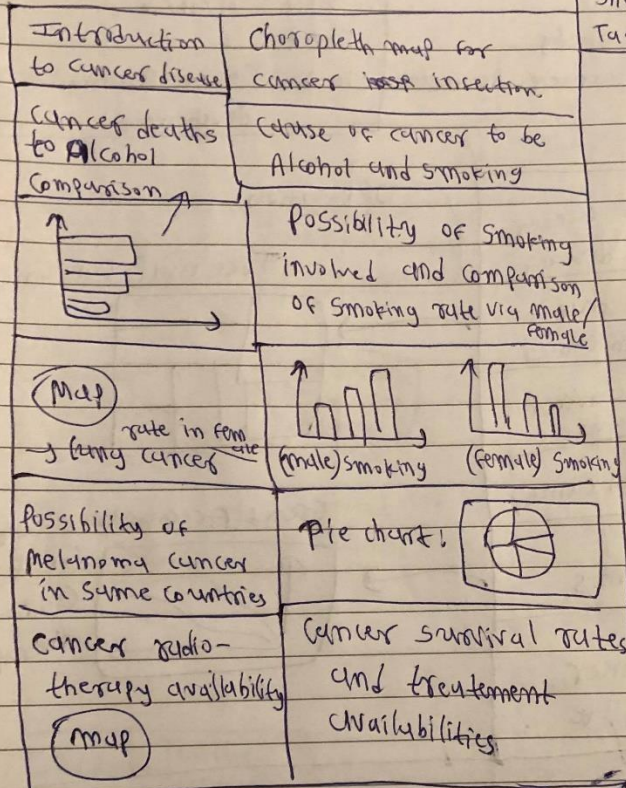 Introduction
to cancer disease
Choropleth map for
cancer insection.
Cancer deaths
to Alcohol
Comparison
Cause of cancer to be
Alcohol and smoking
Possibility of Smoking
involved and comparison
of Smoking rate via male/
female
Map
rate in female
→ lung cancer
(male) smoking
(female) Smoking
Possibility of
melanoma cancer
in same countries
Pie chart:
Cancer radio-
therapy availability
map
Cancer survival rates
and treatement
availabilities
Ta